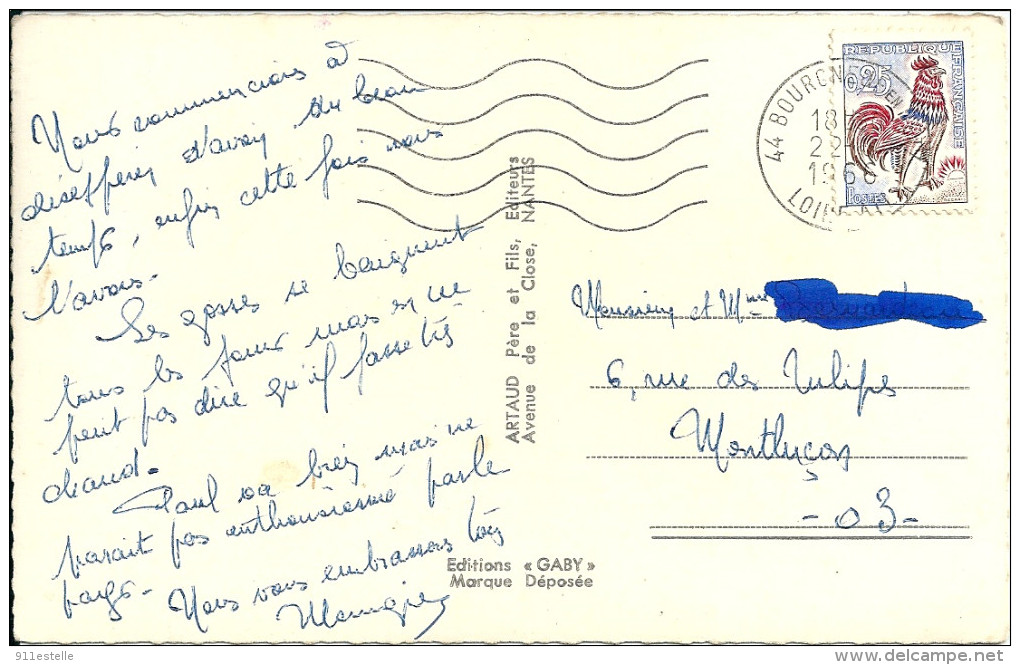 Nous commencions à
désespérer d'avoir du beau
temps, enfin cette fois nous
l'avons.
Les gosses se baignent
tous les jours mais on ne
peut pas dire qu'il fasse très
chaud.
Paul va bien mais ne
parait pas enthousiasmé par le
pays.
Nous vous embrassons
ARTAUD Père et Fils, Editeurs
Avenue de la Close, NANTES
Editions « GABY »
Marque Déposée
REPUBLIQUE FRANÇAISE
0,25
POSTES
44 BOURGNEUF EN
18H
22
196
LOIRE
Monsieur et Mme
6, rue des Tulipes
Montluçon
- 03 -
911estelle
Delcampe.net